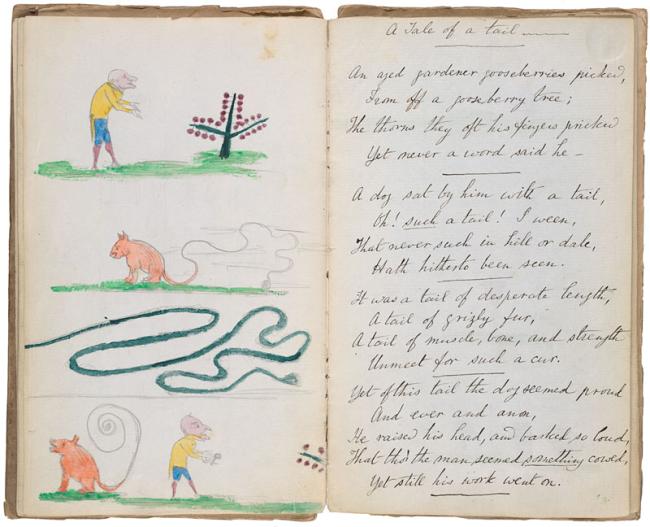 A Tale of a tail
An aged gardener gooseberries picked,
From off a gooseberry tree;
The thorns they oft his fingers pricked
Yet never a word said he -
A dog sat by him with a tail,
Oh! such a tail! I ween,
That never such in hill or dale,
Hath hitherto been seen.
It was a tail of desperate length,
A tail of grizly fur,
A tail of muscle, bone, and strength
Unmeet for such a cur.
Yet of this tail the dog seemed proud
And ever and anon,
He raised his head, and barked so loud,
That tho' the man seemed something cowed,
Yet still his work went on.